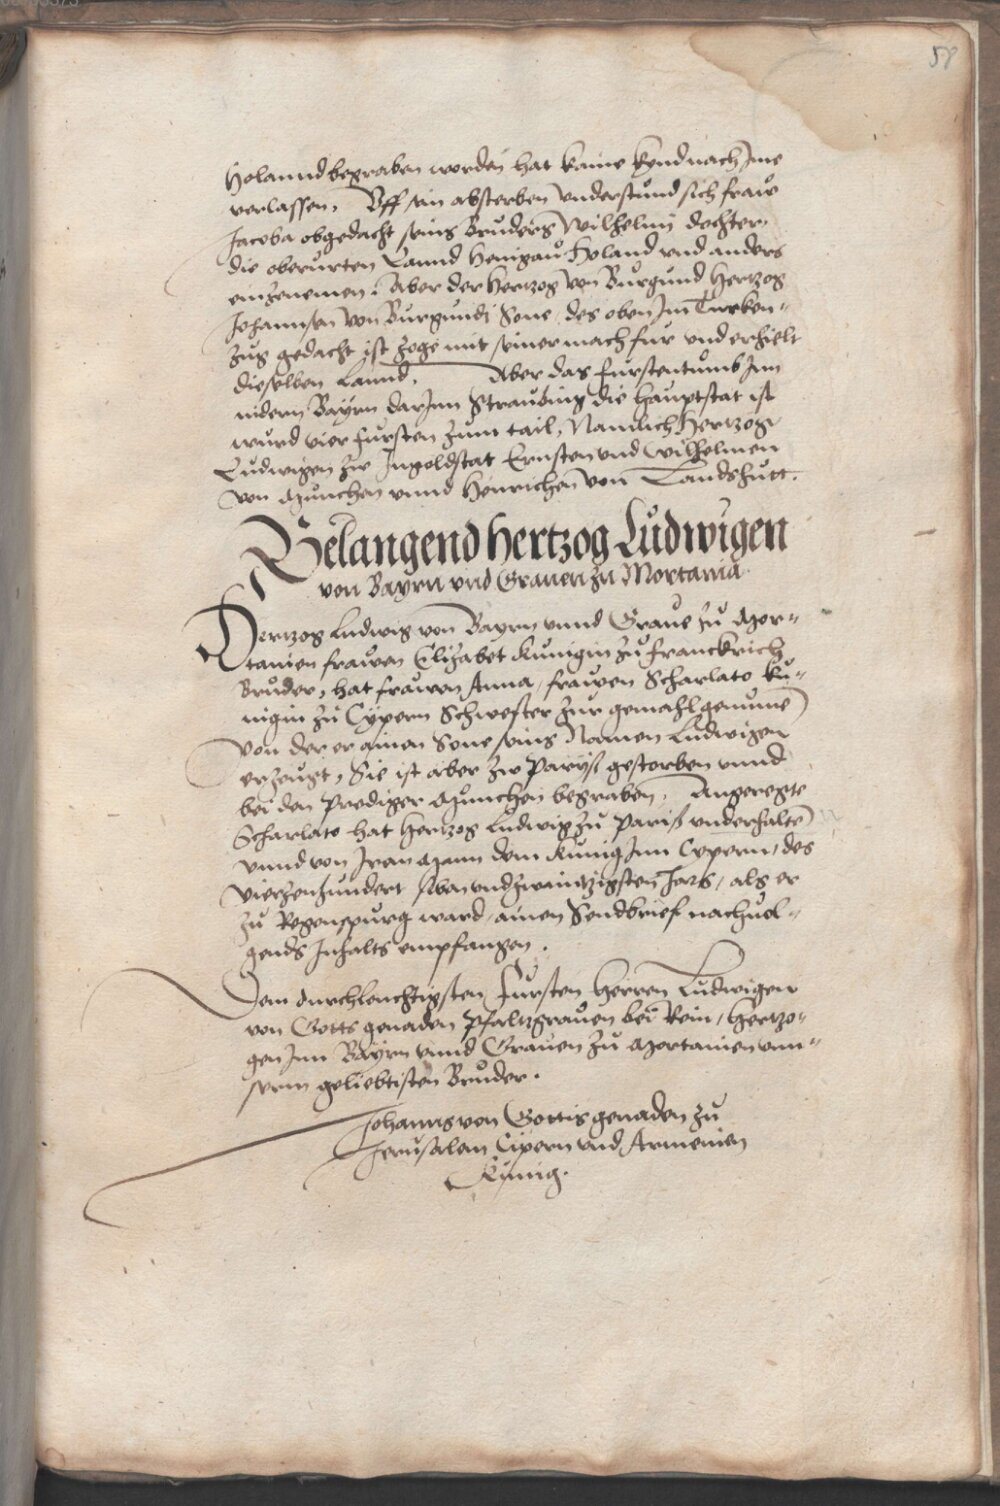 58
Holannd begraben worden hat kaine kynd nach Ime
verlassen, Uff sein absterben understund sich fraw
Jacoba obgedacht seins Bruders Wilhelmj dochter
die oberurten Lannd Henigau Holand und anders
einzenemen. Aber der Hertzog von Burgund Hertzog
Johannsen von Burgundj Sone, des oben Im Turken-
zug gedacht ist zoge mit seiner mach fur und erhielt
dieselben Lannd. Aber das furstentumb Inn
nidern Bayrn darInn Straubing die hauptstat ist
wurd vier fursten zum tail, Namlich Hertzog
Ludwigen zw Ingoldstat Ernsten und Wilhelmen
von Munchen unnd Henrichen von Landshutt.
Belangend Hertzog Ludwigen
von Bayrn und Graven zu Mortania
Hertzog Ludwig von Bayrn unnd Grave zu Mor-
tanien frawen Elizabet Kunigin zu Franckrich
Bruder, hat frawen Anna, frawen Scharlato ku-
nigin zu Cypern Schwester zur gemahl genumē
von der er ainen Sone seins Namen Ludwigen
erzeugt, Sie ist aber zw Paryß gestorben unnd
bei den Prediger Munchen begraben, Angeregte
Scharlato hat Hertzog Ludwig zu Pariß underhaltē
unnd von Iren Mann dem Kunig Inn Cypern, des
vierzenhundert undzwaintzigsten Jars, als er
zu Regenspurg ward, ainen Sendbrief nachuol-
gends Inhalts empfangen.
Dem durchleuchtigsten Fursten Herren Ludwigen
von Gotts genaden Pfaltzgraven bei Rein, Hertzo-
gen Inn Bayrn unnd Graven zu Mortanien unn-
serm geliebtisten Bruder.
Johanns von Gottis genaden zu
Jerusalem Cipern und Armenien
Kunig.